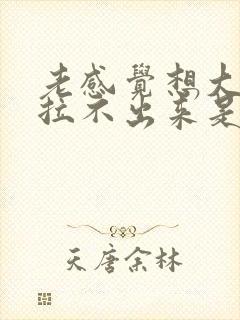 老感覺想大
拉不出來是
天唐余林